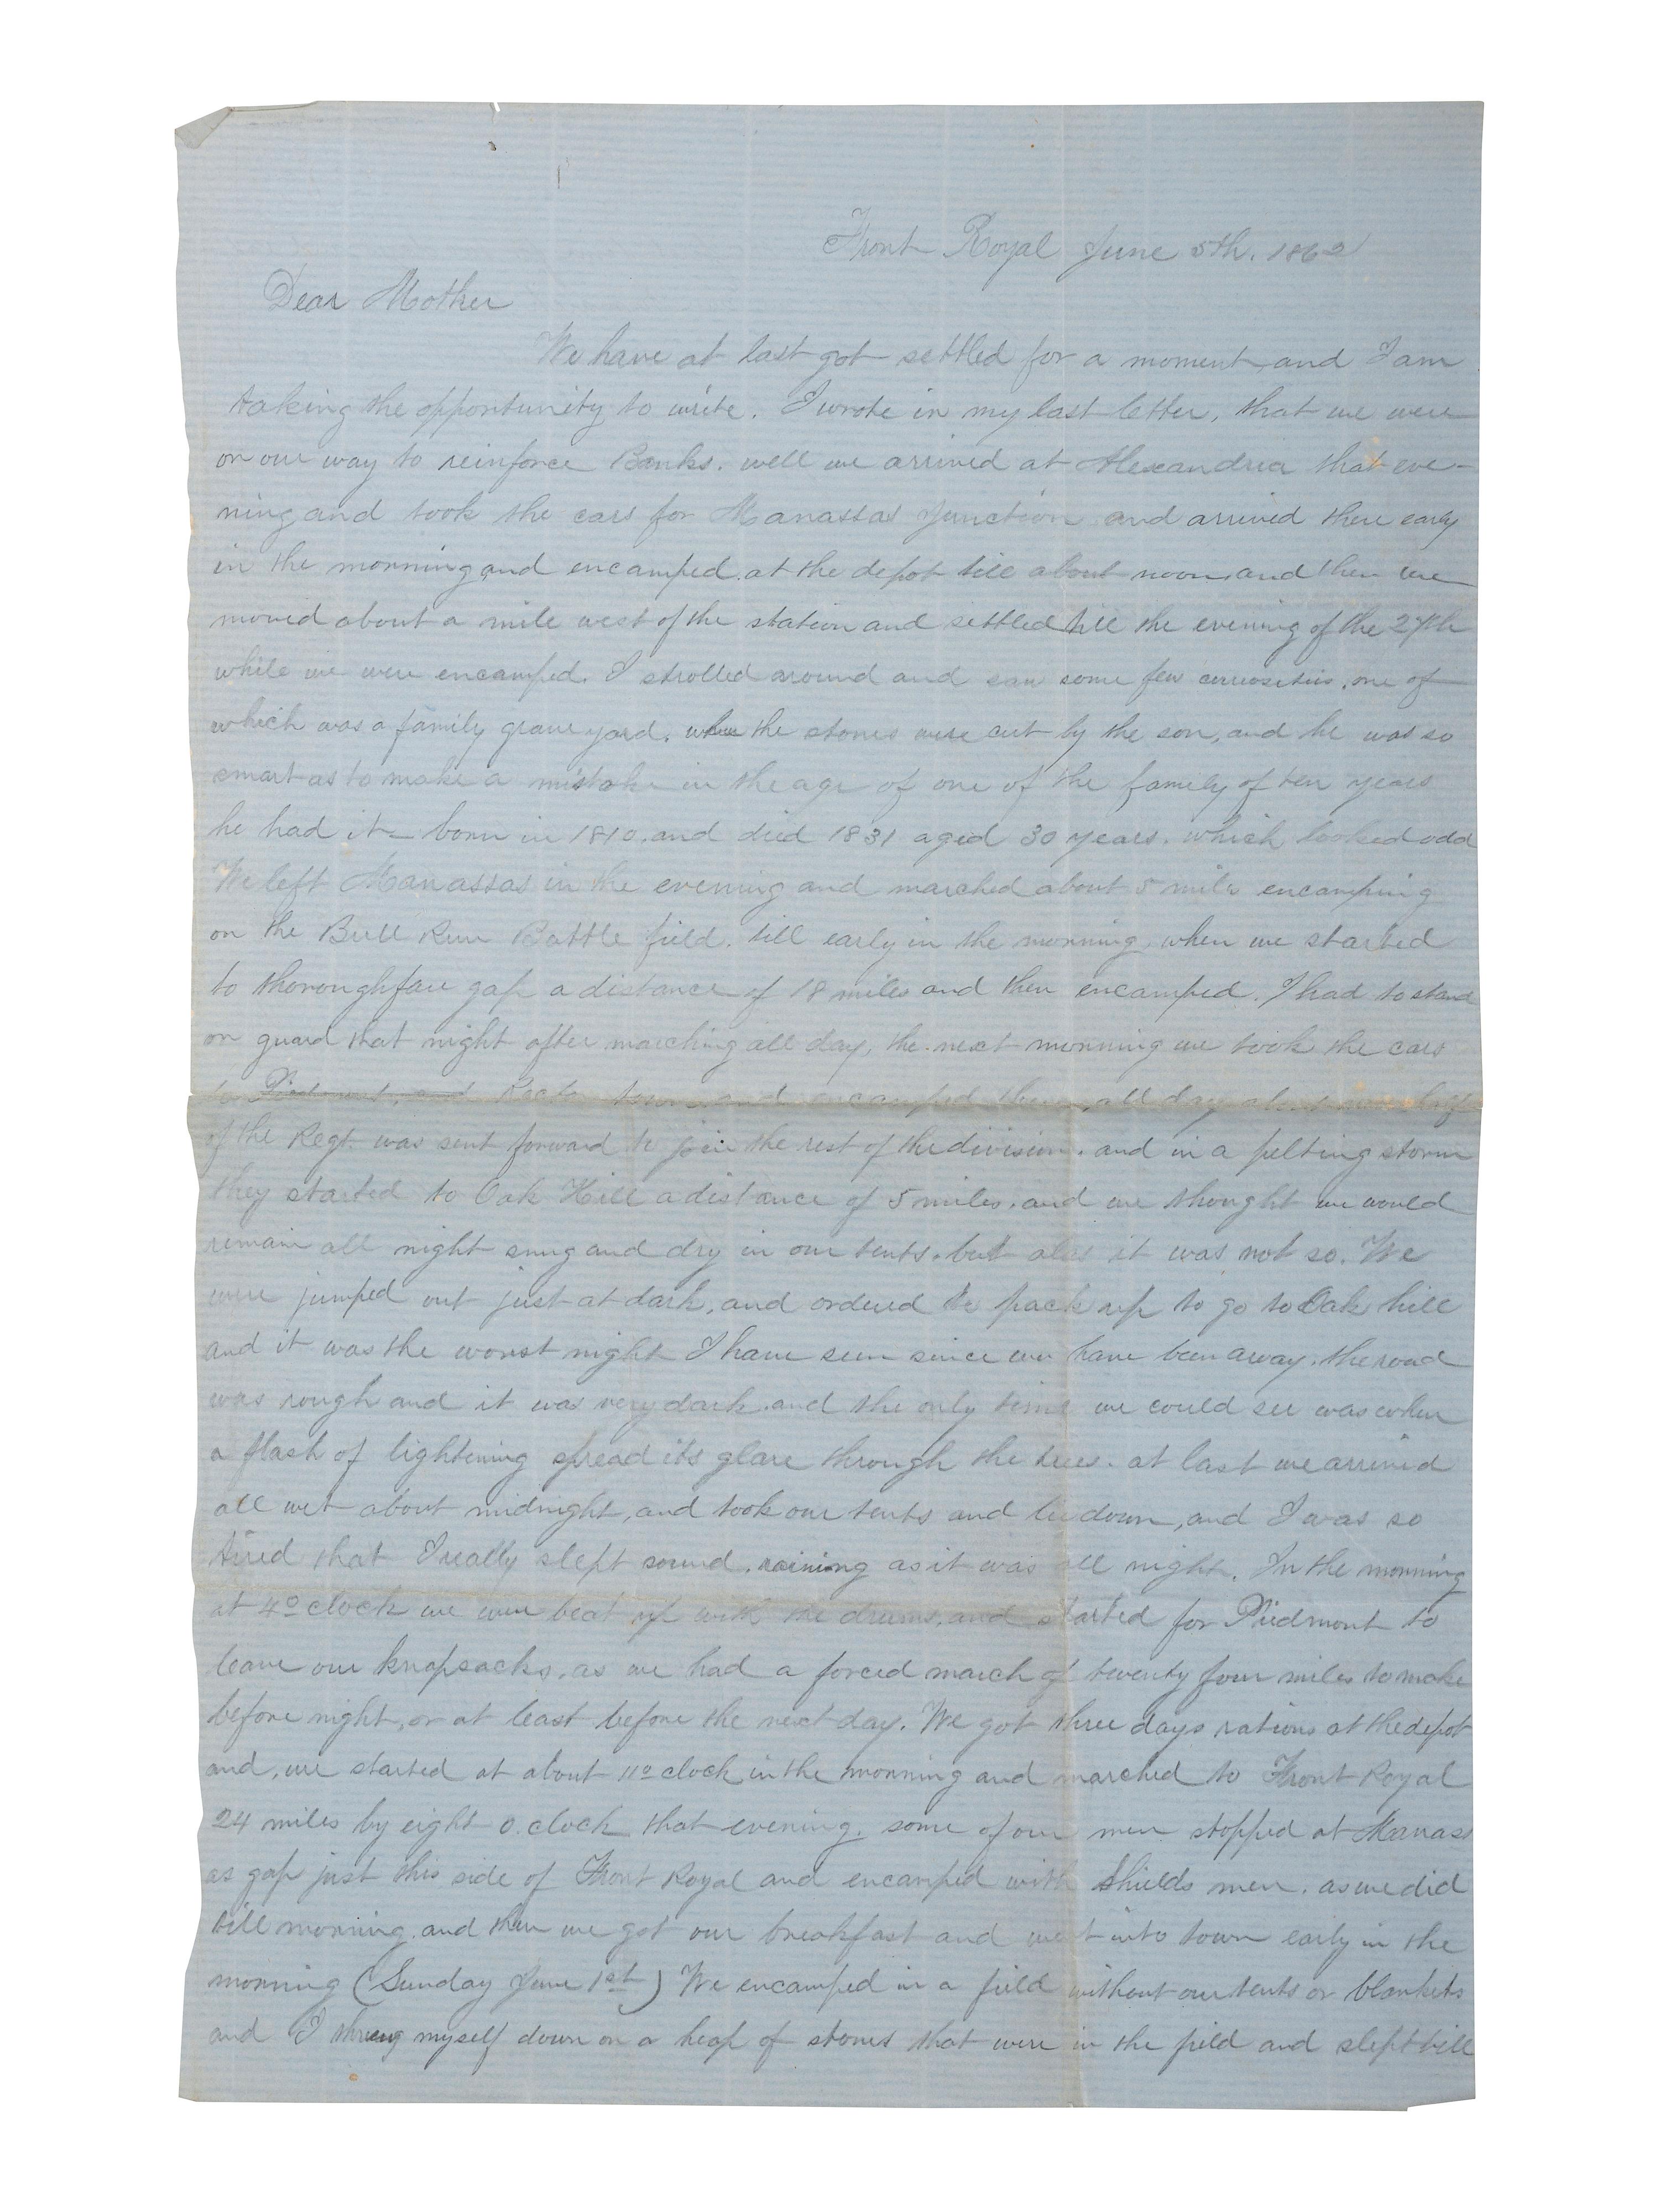 Front Royal June 5th. 1862
Dear Mother
We have at last got settled for a moment and I am
taking the opportunity to write. I wrote in my last letter, that we were
on our way to reinforce Banks. well we arrived at Alexandria that eve-
ning and took the cars for Manassas Junction and arrived there early
in the morning and encamped at the depot till about noon, and then we
moved about a mile west of the station and settled till the evening of the 27th
while we were encamped. I strolled around and saw some few curiosities, one of
which was a family grave yard. where the stones were cut by the son, and he was so
smart as to make a mistake in the age of one of the family of ten years
he had it born in 1810. and died 1831 aged 30 years. which looked odd
We left Manassas in the evening and marched about 5 miles encamping
on the Bull Run Battle field. till early in the morning, when we started
to thoroughfare gap a distance of 18 miles and then encamped. I had to stand
on guard that night after marching all day, the next morning we took the cars
to Piedmont, and Rector town and encamped there all day about one half
of the Regt. was sent forward to join the rest of the division. and in a pelting storm
they started to Oak Hill a distance of 5 miles. and we thought we would
remain all night snug and dry in our tents. but alas it was not so. We
were jumped out just at dark, and ordered to pack up to go to Oak hill
and it was the worst night I have seen since we have been away. the road
was rough and it was very dark. and the only time we could see was when
a flash of lightening spread its glare through the trees. at last we arrived
all wet about midnight, and took our tents and lie down, and I was so
tired that I really slept sound, raining as it was all night. In the morning
at 4 o clock we were beat up with the drums, and started for Piedmont to
leave our knapsacks, as we had a forced march of twenty four miles to make
before night, or at least before the next day. We got three days rations at the depot
and, we started at about 11 o clock in the morning and marched to Front Royal
24 miles by eight o. clock that evening. some of our men stopped at Manass
as gap just this side of Front Royal and encamped with Shields men. as we did
till morning. and then we got our breakfast and went into town early in the
morning (Sunday June 1st) We encamped in a field without our tents or blankets
and I throug myself down on a heap of stones that were in the field and slept till